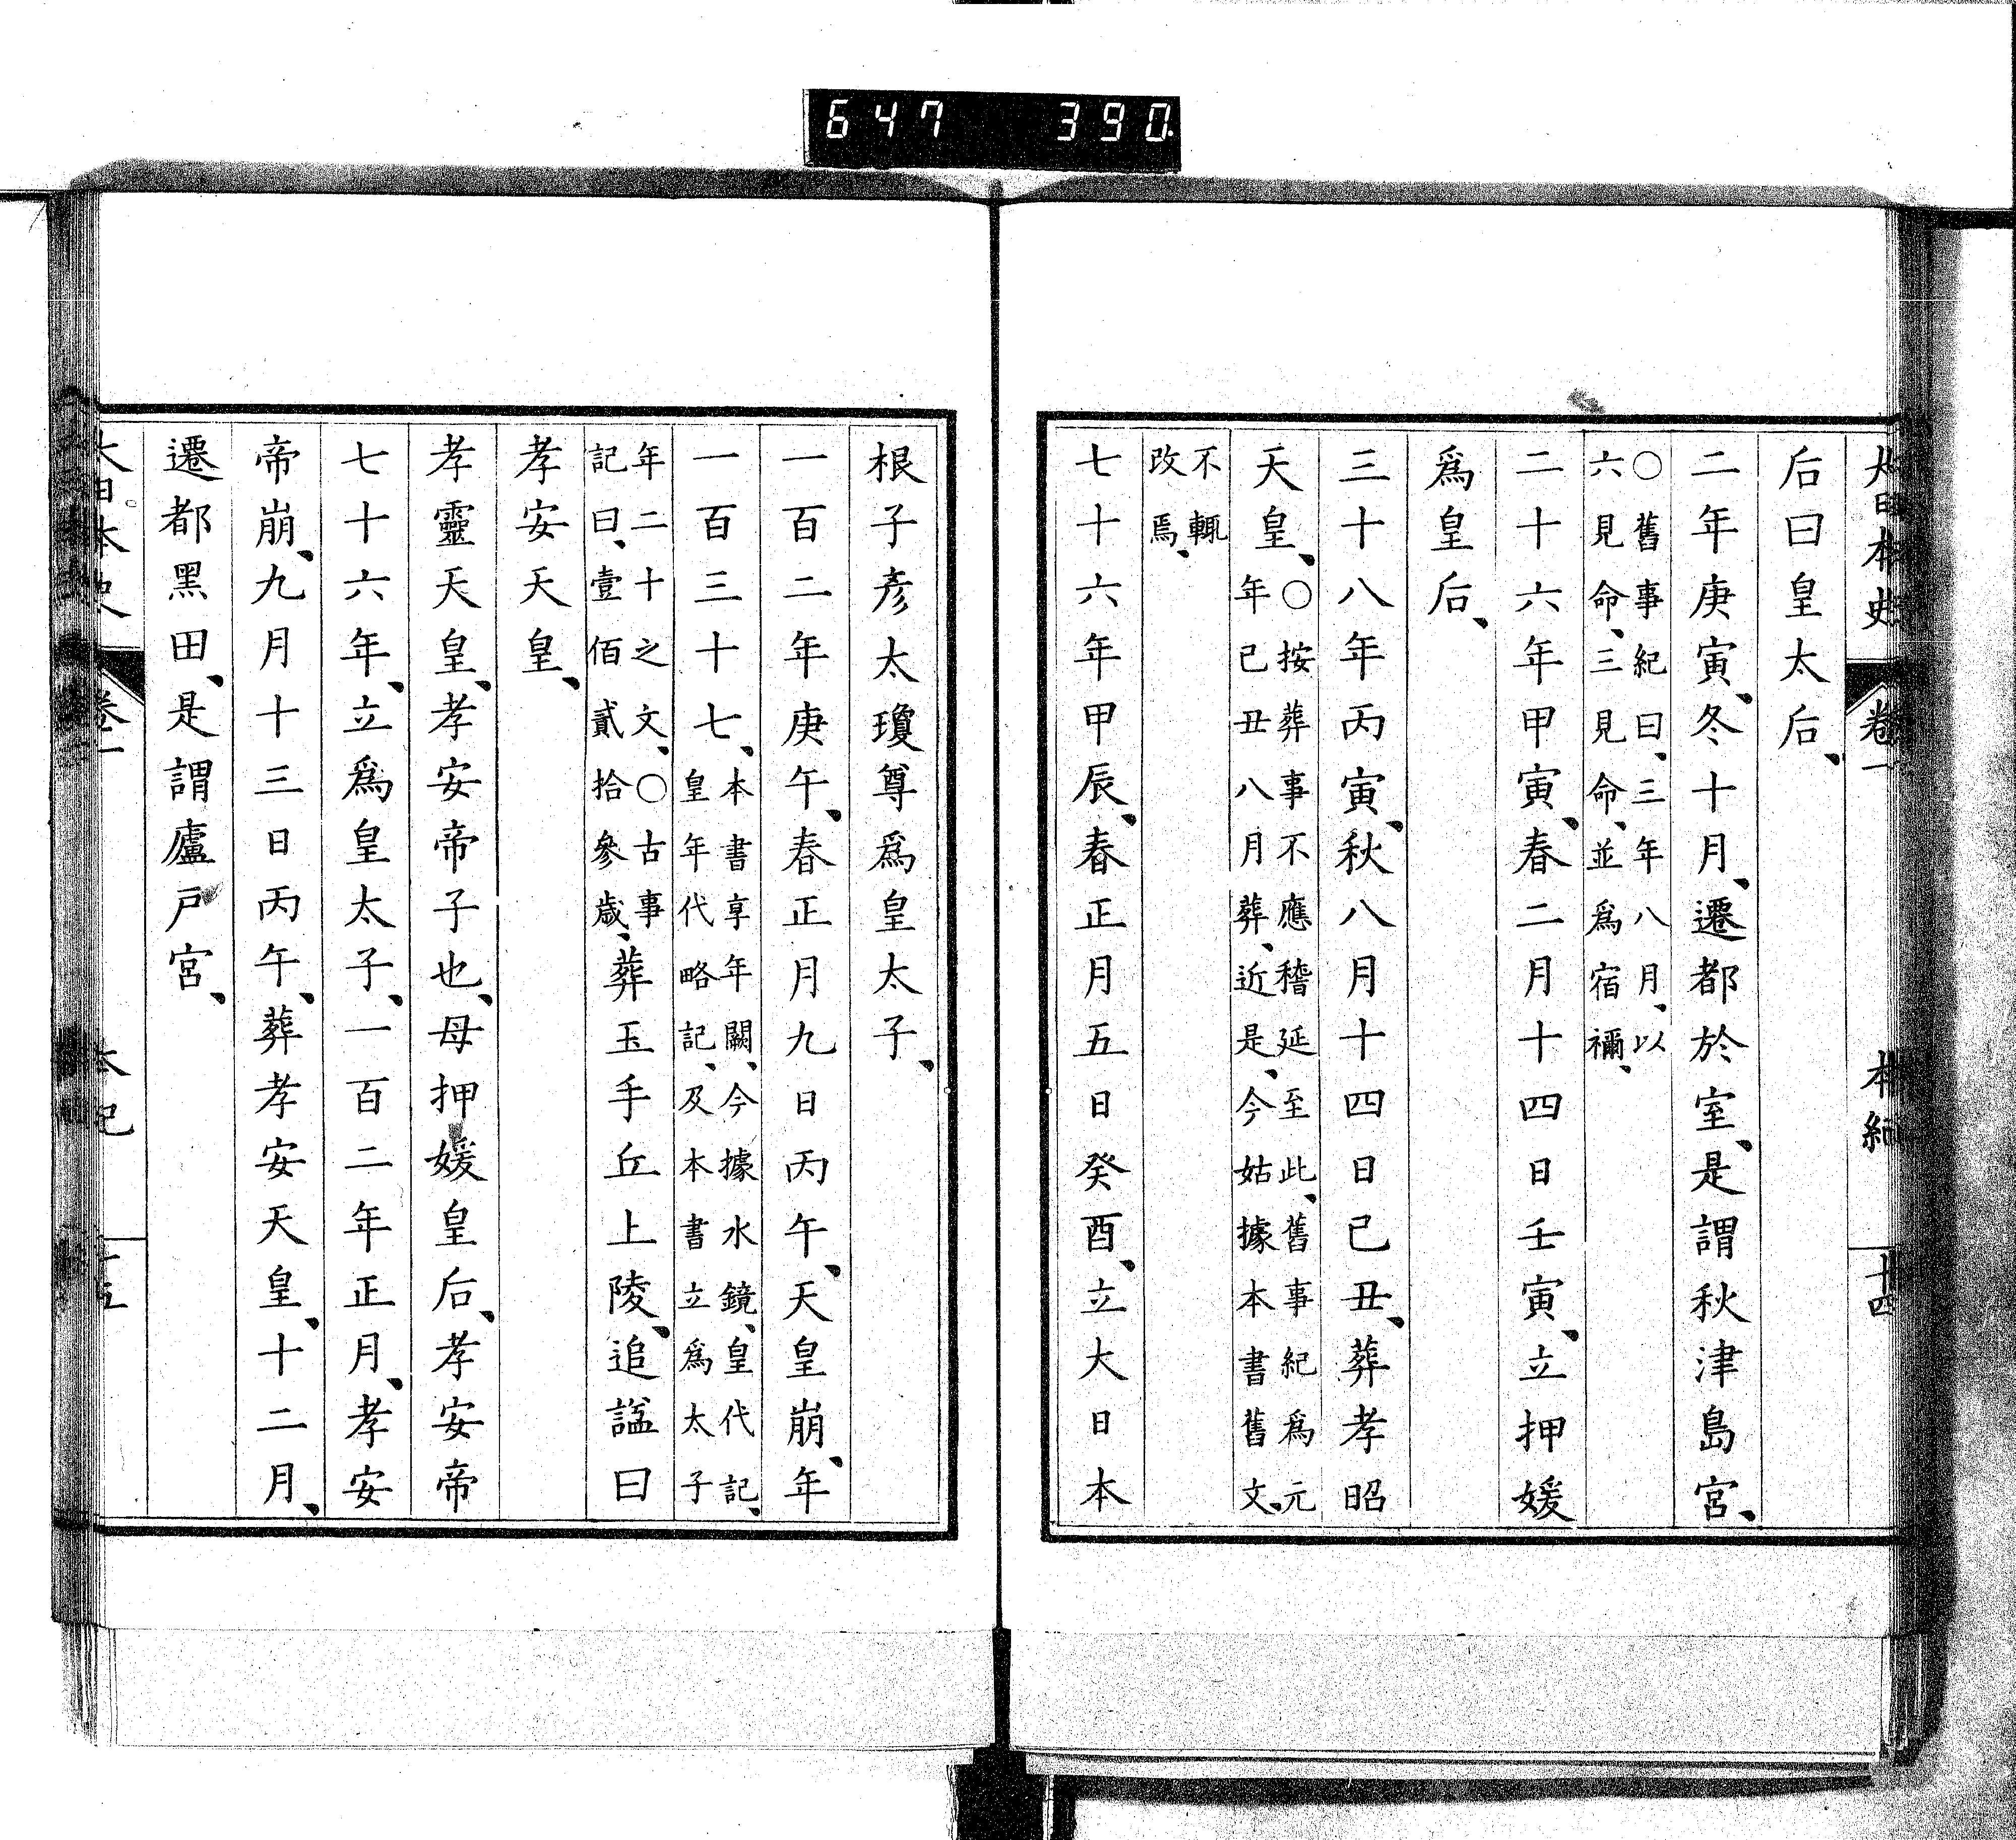 647 390
大日本史 卷一 本紀 十四
后曰皇太后、
二年庚寅、冬十月、遷都於室、是謂秋津島宮、
○舊事紀曰、三年八月、以
六見命、三見命、並爲宿禰、
二十六年甲寅、春二月十四日壬寅、立押媛
爲皇后、
三十八年丙寅、秋八月十四日己丑、葬孝昭
天皇、○按葬事不應稽延至此、舊事紀爲元
年己丑八月葬、近是、今姑據本書舊文、
不輒
改焉、
七十六年甲辰、春正月五日癸酉、立大日本
根子彦太瓊尊爲皇太子、
一百二年庚午、春正月九日丙午、天皇崩、年
一百三十七、本書享年闕、今據水鏡、皇代記、
皇年代略記、及本書立爲太子
年二十之文、○古事
記曰、壹佰貳拾參歲、葬玉手丘上陵、追諡曰
孝安天皇、
孝靈天皇、孝安帝子也、母押媛皇后、孝安帝
七十六年、立爲皇太子、一百二年正月、孝安
帝崩、九月十三日丙午、葬孝安天皇、十二月、
遷都黑田、是謂廬戸宮、
大日本史 卷一 本紀 十五